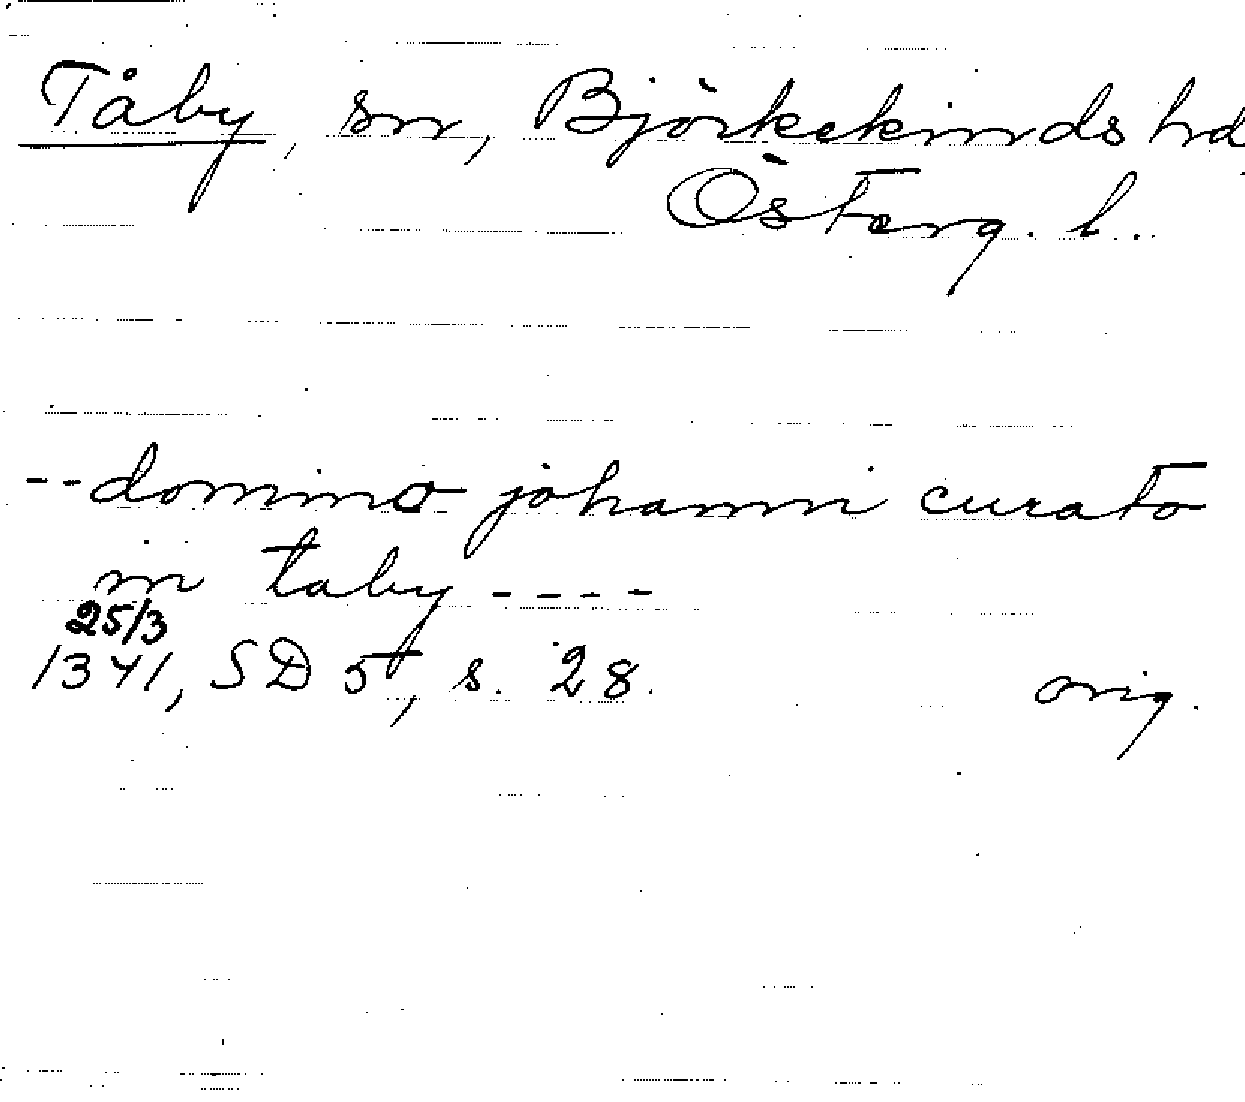 Tåby, sn, Björkekinds hd
Österg. l.
-- domino johanni curato
in taby ----
25/3
1341, SD 5, s. 28.
orig.